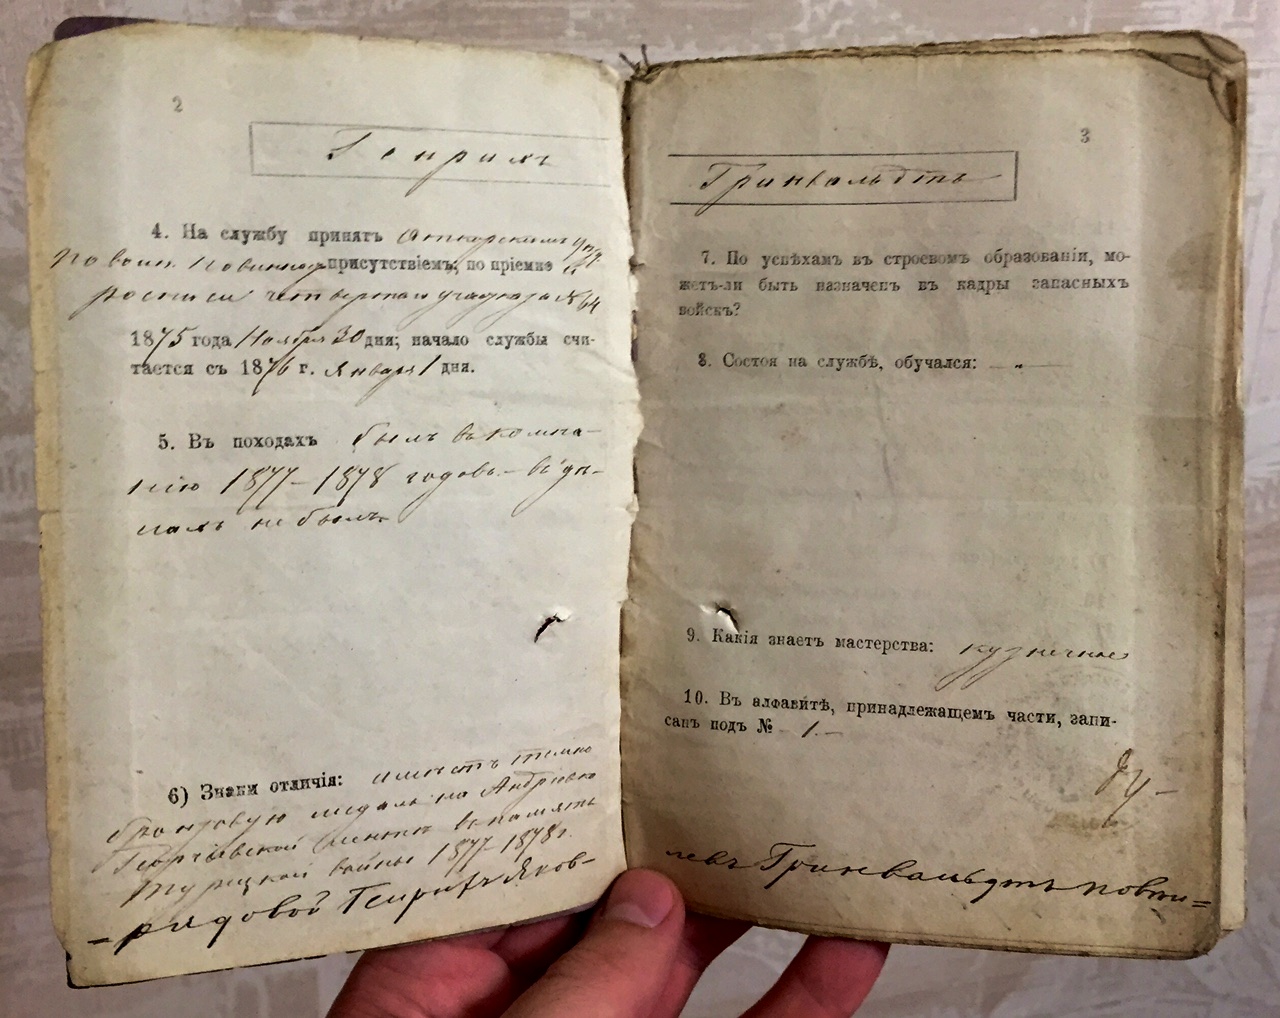 2
Генрихъ
4. На службу принятъ Аткарскимъ уѣзд.
по воин. повинност. присутствіемъ; по пріемной
росписи четвертаго участка № 64
1875 года Ноября 30 дня; начало службы счи-
тается съ 1876 г. Января 1 дня.
5. Въ походахъ былъ въ компа-
нію 1877–1878 годовъ – въ дѣ-
лахъ не былъ.
6) Знаки отличія: имѣетъ темно
бронзовую медаль на Андріевско
Георгіевской лентѣ въ память
турецкой войны 1877–1878 г.
– рядовой Генрихъ Яков-
3
Гринвальдтъ
7. По успѣхамъ въ строевомъ образованіи, мо-
жетъ-ли быть назначенъ въ кадры запасныхъ
войскъ?
8. Состоя на службѣ, обучался: — „ —
9. Какія знаетъ мастерства: кузнечное
10. Въ алфавитѣ, принадлежащемъ части, запи-
санъ подъ № 1. –
левъ Гринвальдтъ